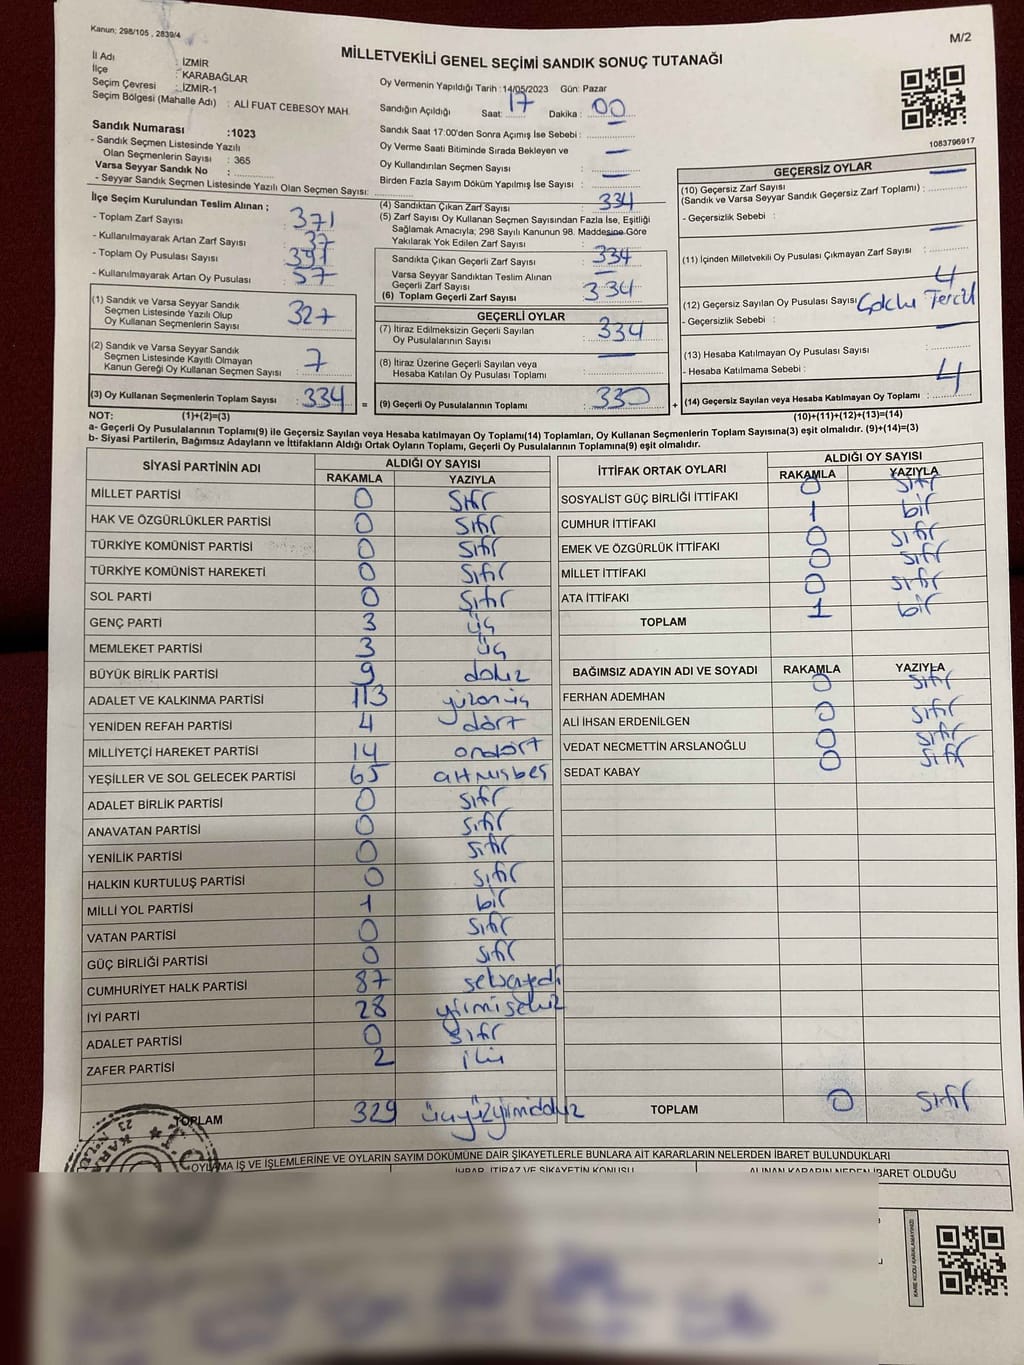 Kanun; 298/105 , 2839/4
M/2
MİLLETVEKİLİ GENEL SEÇİMİ SANDIK SONUÇ TUTANAĞI
İl Adı : İZMİR
İlçe : KARABAĞLAR
Seçim Çevresi : İZMİR-1
Seçim Bölgesi (Mahalle Adı) : ALİ FUAT CEBESOY MAH
Sandık Numarası :1023
- Sandık Seçmen Listesinde Yazılı
Olan Seçmenlerin Sayısı : 365
Varsa Seyyar Sandık No :
- Seyyar Sandık Seçmen Listesinde Yazılı Olan Seçmen Sayısı:
Oy Vermenin Yapıldığı Tarih :14/05/2023 Gün: Pazar
Sandığın Açıldığı Saat: 17 Dakika : 00
Sandık Saat 17:00'den Sonra Açımış İse Sebebi :
Oy Verme Saati Bitiminde Sırada Bekleyen ve
Oy Kullandırılan Seçmen Sayısı : —
Birden Fazla Sayım Döküm Yapılmış İse Sayısı : —
1083796917
İlçe Seçim Kurulundan Teslim Alınan ;
- Toplam Zarf Sayısı : 371
- Kullanılmayarak Artan Zarf Sayısı : 37
- Toplam Oy Pusulası Sayısı : 391
- Kullanılmayarak Artan Oy Pusulası : 57
(1) Sandık ve Varsa Seyyar Sandık
Seçmen Listesinde Yazılı Olup
Oy Kullanan Seçmenlerin Sayısı : 327
(2) Sandık ve Varsa Seyyar Sandık
Seçmen Listesinde Kayıtlı Olmayan
Kanun Gereği Oy Kullanan Seçmen Sayısı : 7
(3) Oy Kullanan Seçmenlerin Toplam Sayısı : 334 =
(4) Sandıktan Çıkan Zarf Sayısı : 334
(5) Zarf Sayısı Oy Kullanan Seçmen Sayısından Fazla İse, Eşitliği
Sağlamak Amacıyla; 298 Sayılı Kanunun 98. Maddesine Göre
Yakılarak Yok Edilen Zarf Sayısı : —
Sandıkta Çıkan Geçerli Zarf Sayısı : 334
Varsa Seyyar Sandıktan Teslim Alınan
Geçerli Zarf Sayısı : —
(6) Toplam Geçerli Zarf Sayısı : 334
GEÇERLİ OYLAR
(7) İtiraz Edilmeksizin Geçerli Sayılan
Oy Pusulalarının Sayısı : 334
(8) İtiraz Üzerine Geçerli Sayılan veya
Hesaba Katılan Oy Pusulası Toplamı : —
(9) Geçerli Oy Pusulalarının Toplamı : 330 +
GEÇERSİZ OYLAR
(10) Geçersiz Zarf Sayısı : —
(Sandık ve Varsa Seyyar Sandık Geçersiz Zarf Toplamı)
- Geçersizlik Sebebi :
(11) İçinden Milletvekili Oy Pusulası Çıkmayan Zarf Sayısı : —
(12) Geçersiz Sayılan Oy Pusulası Sayısı : 4
- Geçersizlik Sebebi : Çoklu Tercih
(13) Hesaba Katılmayan Oy Pusulası Sayısı : —
- Hesaba Katılmama Sebebi :
(14) Geçersiz Sayılan veya Hesaba Katılmayan Oy Toplamı : 4
NOT: (1)+(2)=(3)
(10)+(11)+(12)+(13)=(14)
a- Geçerli Oy Pusulalarının Toplamı(9) ile Geçersiz Sayılan veya Hesaba katılmayan Oy Toplamı(14) Toplamları, Oy Kullanan Seçmenlerin Toplam Sayısına(3) eşit olmalıdır. (9)+(14)=(3)
b- Siyasi Partilerin, Bağımsız Adayların ve İttifakların Aldığı Ortak Oyların Toplamı, Geçerli Oy Pusulalarının Toplamına(9) eşit olmalıdır.
SİYASİ PARTİNİN ADI ALDIĞI OY SAYISI
RAKAMLA YAZIYLA
MİLLET PARTİSİ 0 Sıfır
HAK VE ÖZGÜRLÜKLER PARTİSİ 0 Sıfır
TÜRKİYE KOMÜNİST PARTİSİ 0 Sıfır
TÜRKİYE KOMÜNİST HAREKETİ 0 Sıfır
SOL PARTİ 0 Sıfır
GENÇ PARTİ 3 üç
MEMLEKET PARTİSİ 3 üç
BÜYÜK BİRLİK PARTİSİ 9 dokuz
ADALET VE KALKINMA PARTİSİ 113 yüzonüç
YENİDEN REFAH PARTİSİ 4 dört
MİLLİYETÇİ HAREKET PARTİSİ 14 ondört
YEŞİLLER VE SOL GELECEK PARTİSİ 65 altmışbeş
ADALET BİRLİK PARTİSİ 0 sıfır
ANAVATAN PARTİSİ 0 sıfır
YENİLİK PARTİSİ 0 sıfır
HALKIN KURTULUŞ PARTİSİ 0 sıfır
MİLLİ YOL PARTİSİ 1 bir
VATAN PARTİSİ 0 sıfır
GÜÇ BİRLİĞİ PARTİSİ 0 sıfır
CUMHURİYET HALK PARTİSİ 87 seksenyedi
İYİ PARTİ 28 yirmisekiz
ADALET PARTİSİ 0 sıfır
ZAFER PARTİSİ 2 iki
TOPLAM 329 üçyüzyirmidokuz
İTTİFAK ORTAK OYLARI ALDIĞI OY SAYISI
RAKAMLA YAZIYLA
SOSYALİST GÜÇ BİRLİĞİ İTTİFAKI 0 sıfır
CUMHUR İTTİFAKI 1 bir
EMEK VE ÖZGÜRLÜK İTTİFAKI 0 sıfır
MİLLET İTTİFAKI 0 sıfır
ATA İTTİFAKI 0 sıfır
TOPLAM 1 bir
BAĞIMSIZ ADAYIN ADI VE SOYADI RAKAMLA YAZIYLA
FERHAN ADEMHAN 0 sıfır
ALİ İHSAN ERDENİLGEN 0 sıfır
VEDAT NECMETTİN ARSLANOĞLU 0 sıfır
SEDAT KABAY 0 sıfır
TOPLAM 0 sıfır
OYLAMA İŞ VE İŞLEMLERİNE VE OYLARIN SAYIM DÖKÜMÜNE DAİR ŞİKAYETLERLE BUNLARA AİT KARARLARIN NELERDEN İBARET BULUNDUKLARI
İHBAR, İTİRAZ VE ŞİKAYETİN KONUSU
ALINAN KARARIN NEDEN İBARET OLDUĞU
KARE KODU KARALAMAYINIZ!